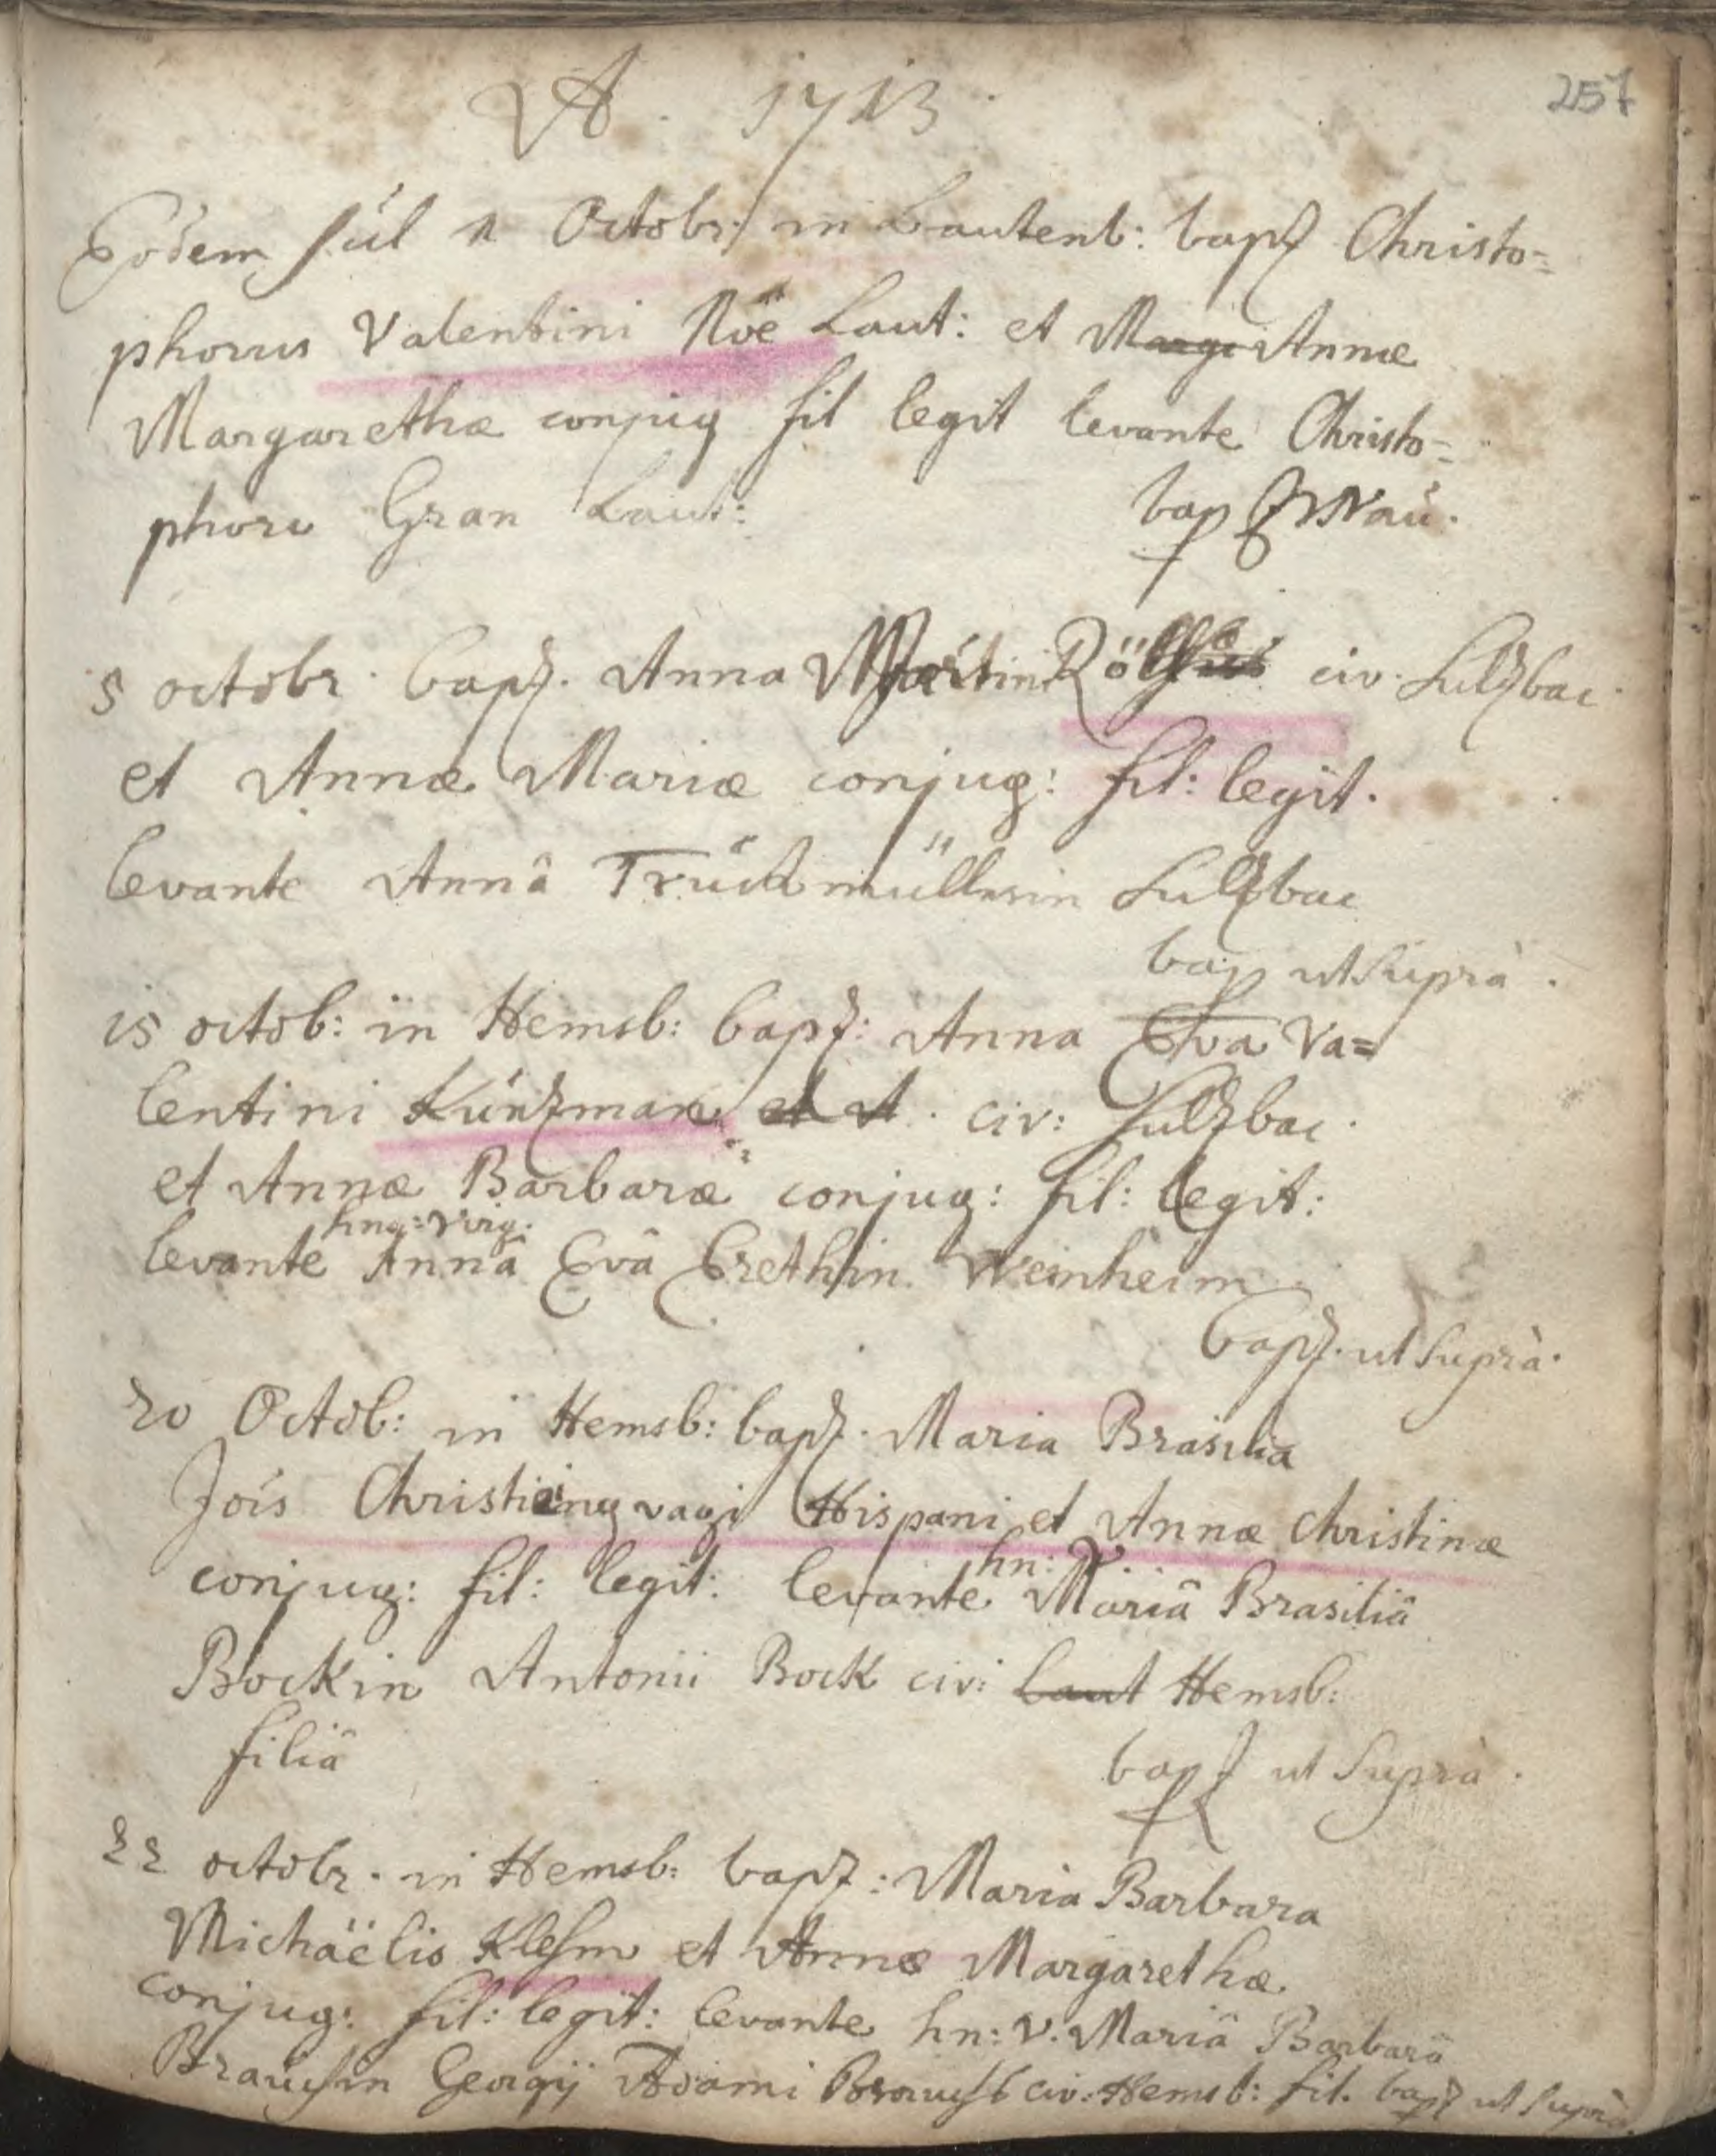 A. 1713.
257
Eodem Octobr: in Lautenb: bapt Christo=
phorus Valentini Nöe Laut: et Marga Annæ
Margarethæ conjug fil legit levante Christo=
phoro Gran Laut:
bap
5 octobr. bapt. Anna Martini civ. Sulzbac.
et Annæ Mariæ conjug: fil: legit.
levante Annâ Trückmüllerin Sulzbac
bap ut supra.
15 octob: in Hemsb: bapt: Anna Eva Va=
lentini Künzman et A. civ: Sulzbac.
et Annæ Barbaræ conjug: fil: legit:
hng: virg:
levante Annâ Evâ Erethin Weinheim
bapt. ut supra.
20 Octob: in Hemsb: bapt. Maria Brasilia
Jois vagi Hispani et Annæ Christinæ
hn: V.
conjug: fil: legit: levante Mariâ Brasiliâ
Bockin Antonii Bock civ: Laut Hemsb:
filiâ
bapt ut supra.
22 octobr. in Hemsb: bapt: Maria Barbara
Michäelis et Annæ Margarethæ
conjug: fil: legit: levante hn: V. Mariâ Barbarâ
Georgij Adami civ: Hemsb: fil. bapt ut supra